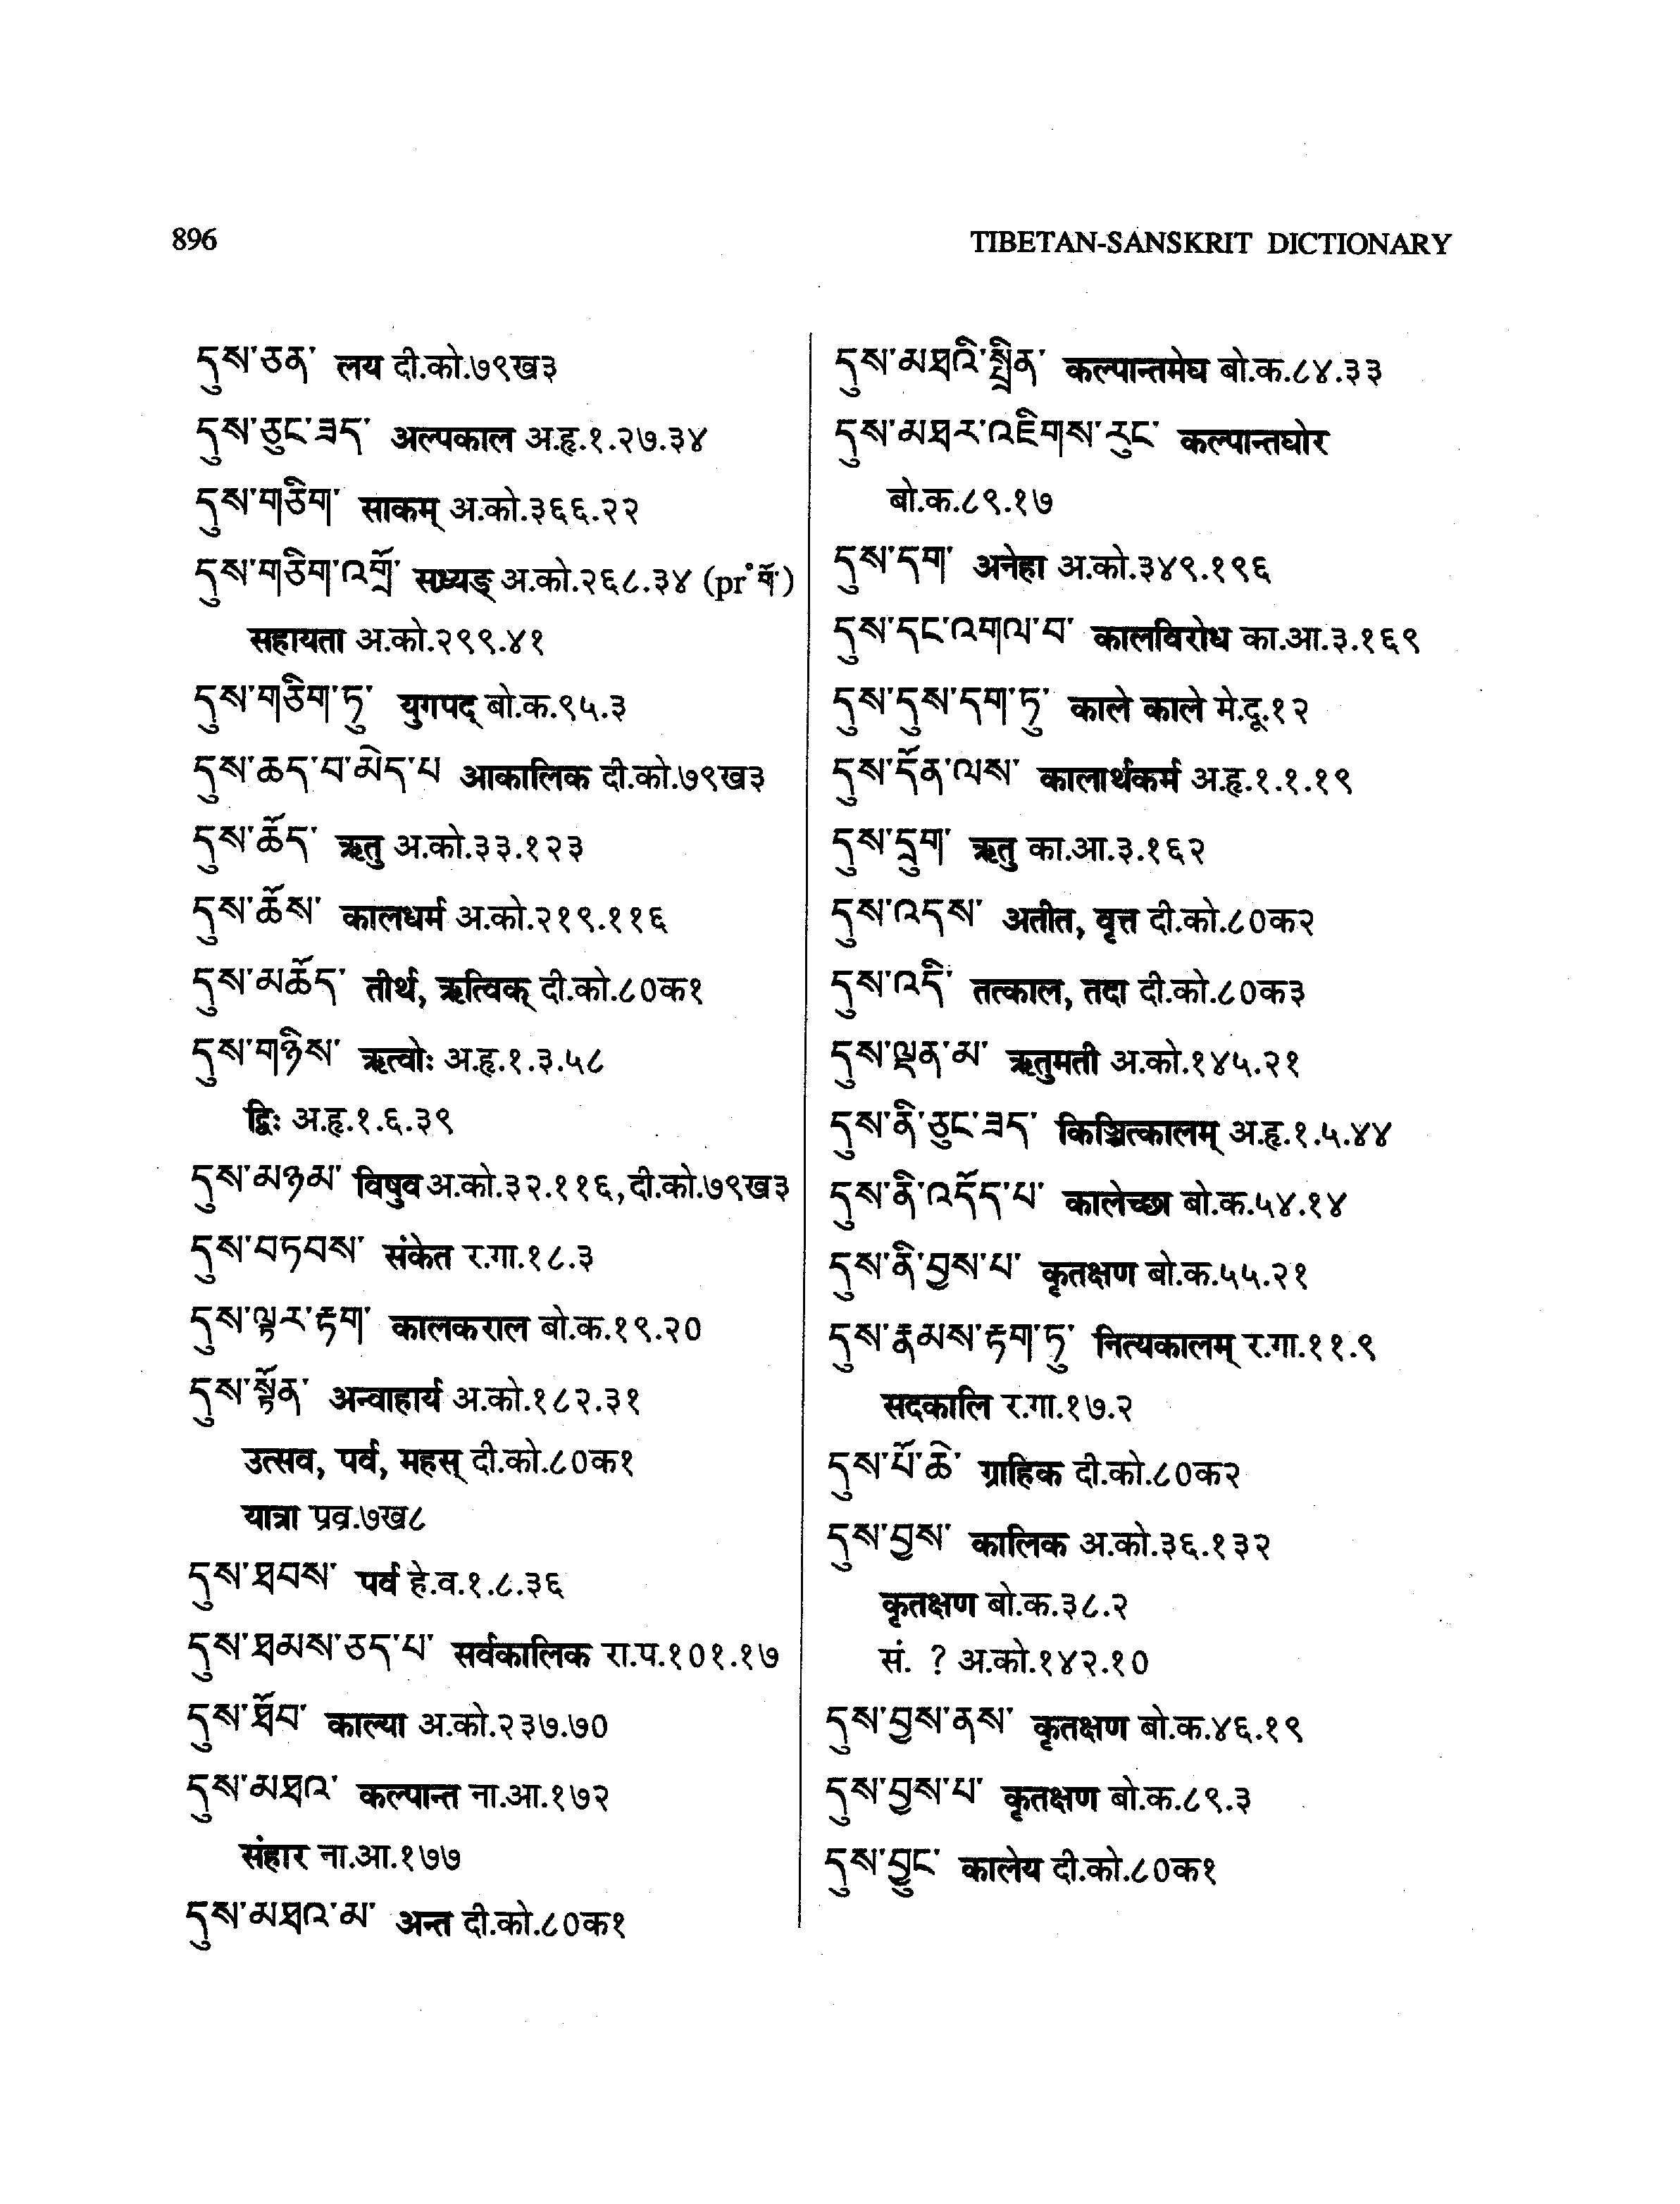 896
TIBETAN-SANSKRIT DICTIONARY
དུས་ཅན་ लय दी.को.७९ख३
དུས་ཅུང་ཟད་ अल्पकाल अ.हृ.१.२७.३४
དུས་གཅིག་ साकम् अ.को.३६६.२२
དུས་གཅིག་འགྲོ་ सध्यङ् अ.को.२६८.३४ (pr°
सहायता अ.को.२९९.४१
དུས་གཅིག་ཏུ་ युगपद् बो.क.९५.३
དུས་ཆད་པ་མེད་པ आकालिक दी.को.७९ख३
དུས་ཚོད་ ऋतु अ.को.३३.१२३
དུས་ཆོས་ कालधर्म अ.को.२१९.११६
དུས་མཆོད་ तीर्थ, ऋत्विक् दी.को.८०क१
དུས་གཉིས་ ऋत्वोः अ.हृ.१.३.५८
द्विः अ.हृ.१.६.३९
དུས་མཉམ་ विषुव अ.को.३२.११६, दी.को.७९ख३
དུས་བཏབས་ संकेत र.गा.१८.३
དུས་ལྟར་རྟག་ कालकराल बो.क.१९.२०
དུས་སྟོན་ अन्वाहार्य अ.को.१८२.३१
उत्सव, पर्व, महस् दी.को.८०क१
यात्रा प्रव्र.७ख८
དུས་ཐབས་ पर्व हे.व.१.८.३६
དུས་ཐམས་ཅད་པ་ सर्वकालिक रा.प.१०१.१७
དུས་ཐོབ་ काल्या अ.को.२३७.७०
དུས་མཐའ་ कल्पान्त ना.आ.१७२
संहार ना.आ.१७७
དུས་མཐའ་མ་ अन्त दी.को.८०क१
དུས་མཐའི་སྤྲིན་ कल्पान्तमेघ बो.क.८४.३३
དུས་མཐར་འཇིགས་རུང་ कल्पान्तघोर
बो.क.८९.१७
དུས་དག་ अनेहा अ.को.३४९.१९६
དུས་དང་འགལ་བ་ कालविरोध का.आ.३.१६९
དུས་དུས་དག་ཏུ་ काले काले मे.दू.१२
དུས་དོན་ལས་ कालार्थकर्म अ.हृ.१.१.१९
དུས་དྲུག་ ऋतु का.आ.३.१६२
དུས་འདས་ अतीत, वृत्त दी.को.८०क२
དུས་འདི་ तत्काल, तदा दी.को.८०क३
དུས་ལྡན་མ་ ऋतुमती अ.को.१४५.२१
དུས་ནི་ཅུང་ཟད་ किञ्चित्कालम् अ.हृ.१.५.४४
དུས་ནི་འདོད་པ་ कालेच्छा बो.क.५४.१४
དུས་ནི་བྱས་པ་ कृतक्षण बो.क.५५.२१
དུས་རྣམས་རྟག་ཏུ་ नित्यकालम् र.गा.११.९
सदकालि र.गा.१७.२
དུས་པོ་ཆེ་ ग्राहिक दी.को.८०क२
དུས་བྱས་ कालिक अ.को.३६.१३२
कृतक्षण बो.क.३८.२
सं. ? अ.को.१४२.१०
དུས་བྱས་ནས་ कृतक्षण बो.क.४६.१९
དུས་བྱས་པ་ कृतक्षण बो.क.८९.३
དུས་བྱུང་ कालेय दी.को.८०क१